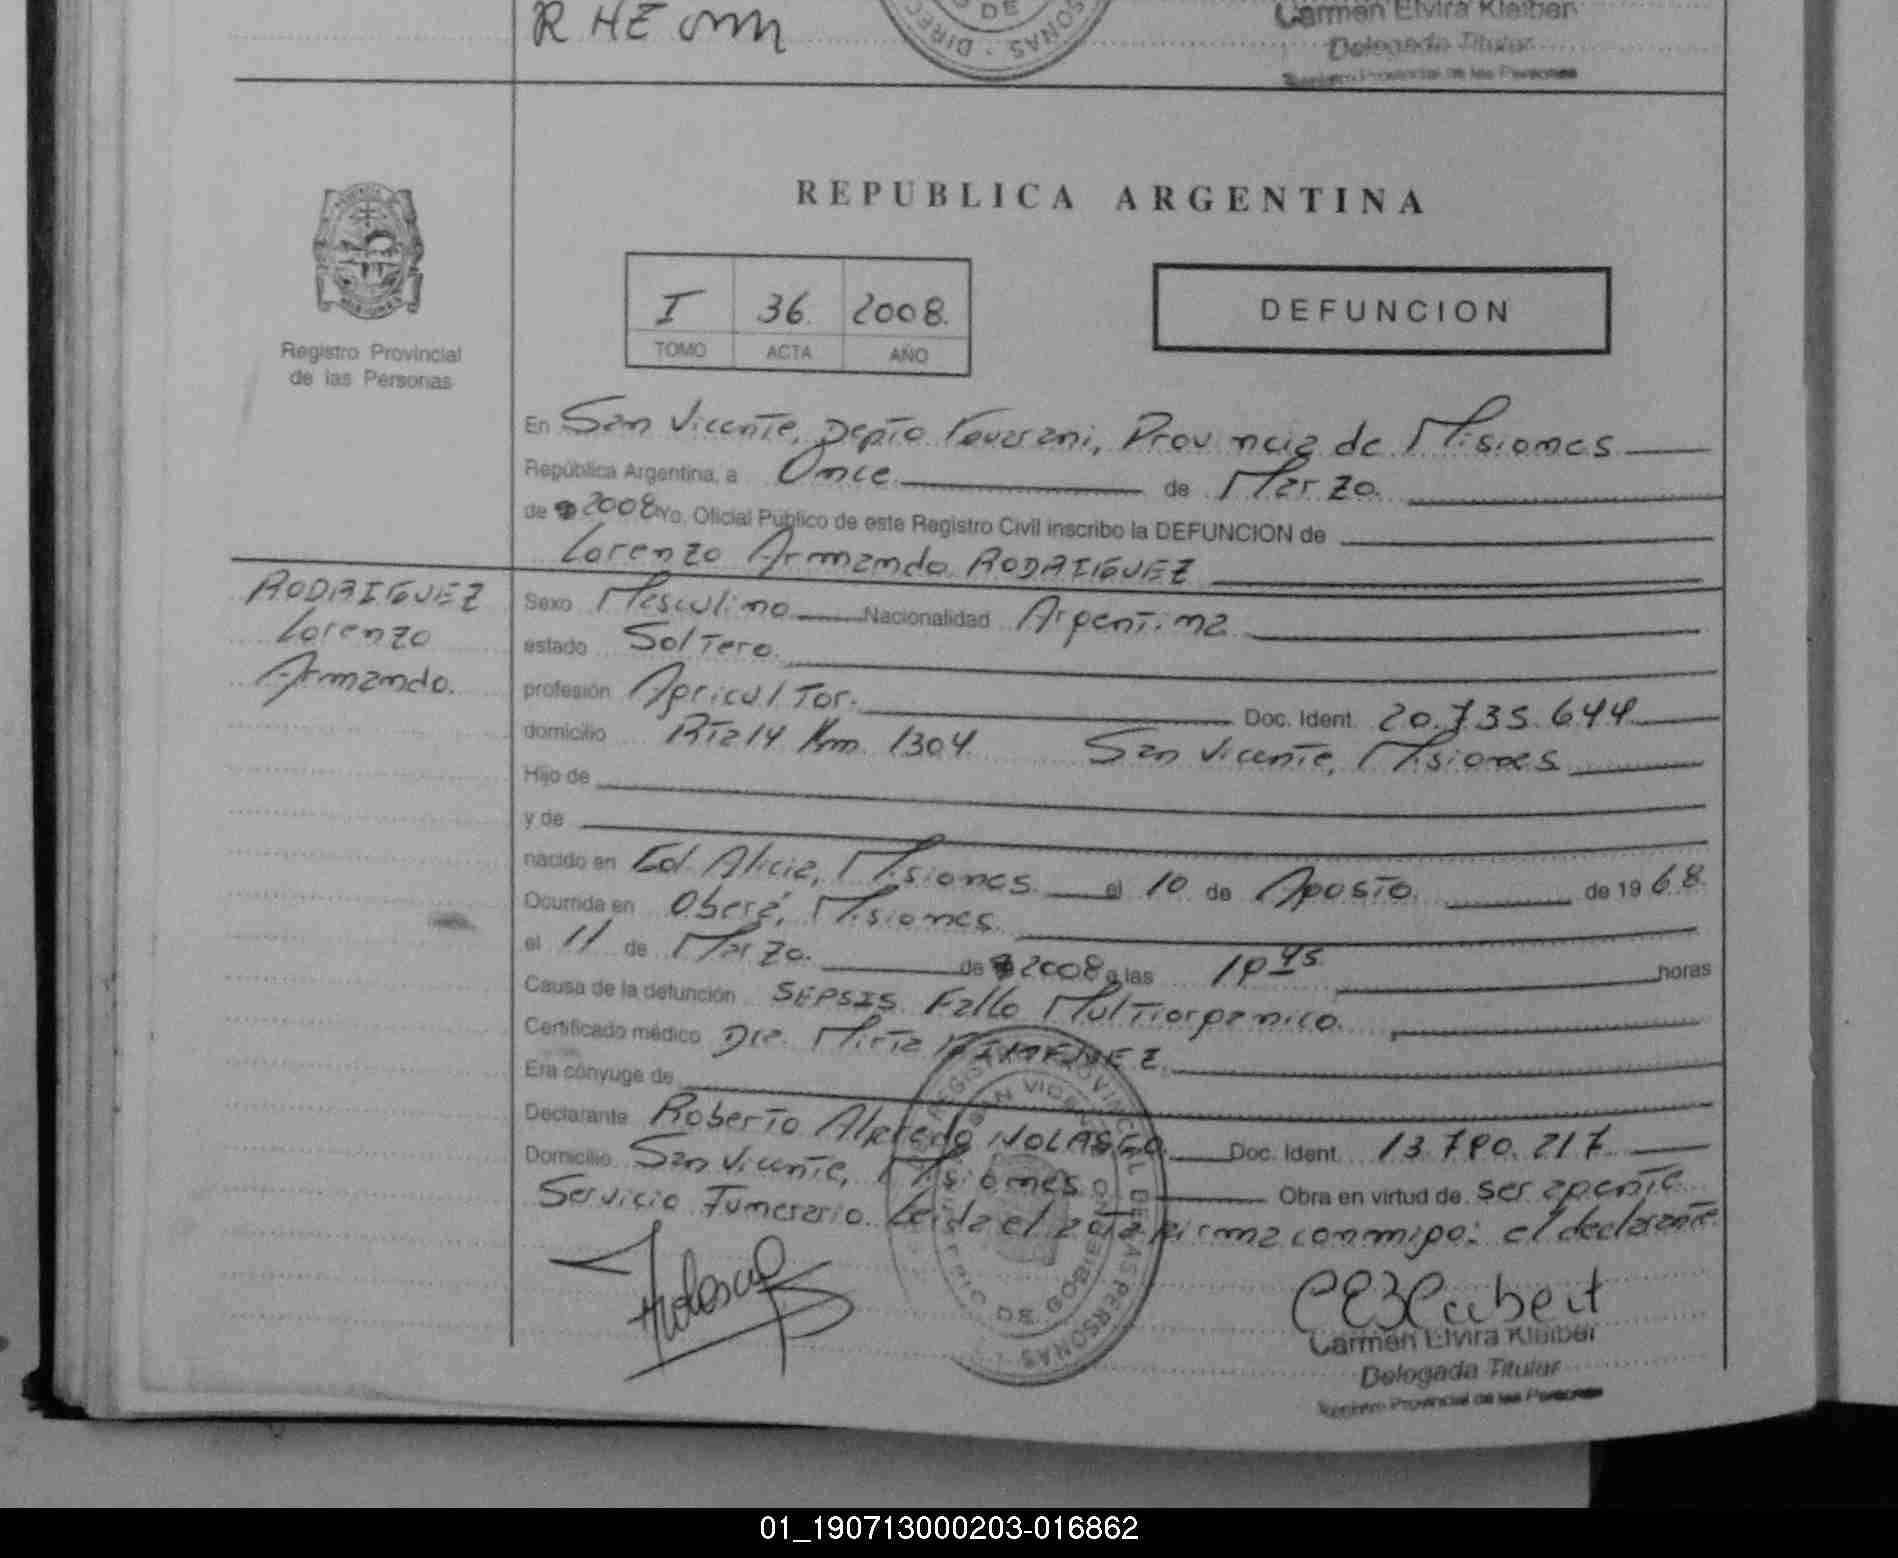 R HE
DIRECCION
DE
PERSONAS
Carmen Elvira Kleiber
Delegada Titular
Registro Provincial de las Personas
REPUBLICA ARGENTINA
I 36. 2008.
TOMO ACTA AÑO
DEFUNCION
Registro Provincial
de las Personas
En San Vicente, Depto Guarani, Provincia de Misiones
República Argentina, a Once de Marzo.
de 2008 Yo, Oficial Público de este Registro Civil inscribo la DEFUNCION de
Lorenzo Armando RODRIGUEZ
RODRIGUEZ
Lorenzo
Armando.
Sexo Masculino Nacionalidad Argentina
estado Soltero.
profesión Agricultor. Doc. Ident. 20.735.644
domicilio Rta 14 Km. 1304 San Vicente, Misiones
Hijo de
y de
nacido en Col. Alicia, Misiones el 10 de Agosto. de 1968.
Ocurrida en Oberá, Misiones.
el 11 de Marzo. de 2008 a las 45 horas
Causa de la defunción SEPSIS Fallo Multiorganico.
Certificado médico Dra. Mirta GIMENEZ.
Era cónyuge de
Declarante Roberto Alfredo NOLASCO. Doc. Ident. 13.790.217
Domicilio San Vicente, Misiones Obra en virtud de ser agente
Servicio Funerario. Leida el acta firma conmigo: el declarante.
REGISTRO PROVINCIAL DE LAS PERSONAS
SAN VICENTE
Nolasco
CEKleiber
Carmen Elvira Kleiber
Delegada Titular
Registro Provincial de las Personas
01_190713000203-016862